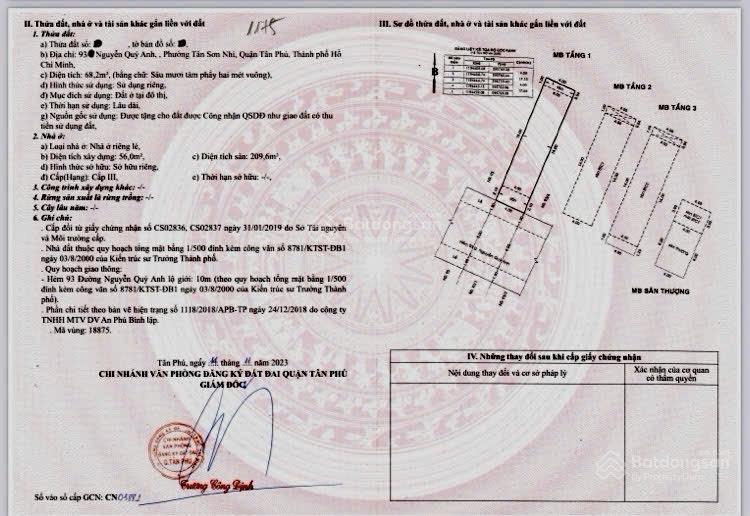 1175
II. Thửa đất, nhà ở và tài sản khác gắn liền với đất
1. Thửa đất:
a) Thửa đất số: , tờ bản đồ số: ,
b) Địa chỉ: 93 Nguyễn Quý Anh, , Phường Tân Sơn Nhì, Quận Tân Phú, Thành phố Hồ
Chí Minh,
c) Diện tích: 68,2m², (bằng chữ: Sáu mươi tám phẩy hai mét vuông),
d) Hình thức sử dụng: Sử dụng riêng,
đ) Mục đích sử dụng: Đất ở tại đô thị,
e) Thời hạn sử dụng: Lâu dài,
g) Nguồn gốc sử dụng: Được tặng cho đất được Công nhận QSDĐ như giao đất có thu
tiền sử dụng đất,
2. Nhà ở:
a) Loại nhà ở: Nhà ở riêng lẻ,
b) Diện tích xây dựng: 56,0m², c) Diện tích sàn: 209,6m²,
d) Hình thức sở hữu: Sở hữu riêng,
đ) Cấp(Hạng): Cấp III, e) Thời hạn sở hữu: -/-,
3. Công trình xây dựng khác: -/-
4. Rừng sản xuất là rừng trồng: -/-
5. Cây lâu năm: -/-
6. Ghi chú:
. Cấp đổi từ giấy chứng nhận số CS02836, CS02837 ngày 31/01/2019 do Sở Tài nguyên
và Môi trường cấp.
. Nhà đất thuộc quy hoạch tổng mặt bằng 1/500 đính kèm công văn số 8781/KTST-ĐB1
ngày 03/8/2000 của Kiến trúc sư Trưởng Thành phố.
. Quy hoạch giao thông:
- Hẻm 93 Đường Nguyễn Quý Anh lộ giới: 10m (theo quy hoạch tổng mặt bằng 1/500
đính kèm công văn số 8781/KTST-ĐB1 ngày 03/8/2000 của Kiến trúc sư Trưởng Thành
phố).
. Phần chi tiết theo bản vẽ hiện trạng số 1118/2018/APB-TP ngày 24/12/2018 do công ty
TNHH MTV DV An Phú Bình lập.
. Mã vùng: 18875.
Tân Phú, ngày tháng 11 năm 2023
CHI NHÁNH VĂN PHÒNG ĐĂNG KÝ ĐẤT ĐAI QUẬN TÂN PHÚ
GIÁM ĐỐC
CHI NHÁNH
VĂN PHÒNG
ĐĂNG KÝ ĐẤT ĐAI
Q.TÂN PHÚ
Trương Công Định
Số vào sổ cấp GCN: CN
III. Sơ đồ thửa đất, nhà ở và tài sản khác gắn liền với đất
B
MB TẦNG 1
MB TẦNG 2
MB TẦNG 3
MB SÂN THƯỢNG
IV. Những thay đổi sau khi cấp giấy chứng nhận
Nội dung thay đổi và cơ sở pháp lý
Xác nhận của cơ quan
có thẩm quyền
Batdongsan
by PropertyGuru
Batdongsan
by PropertyGuru